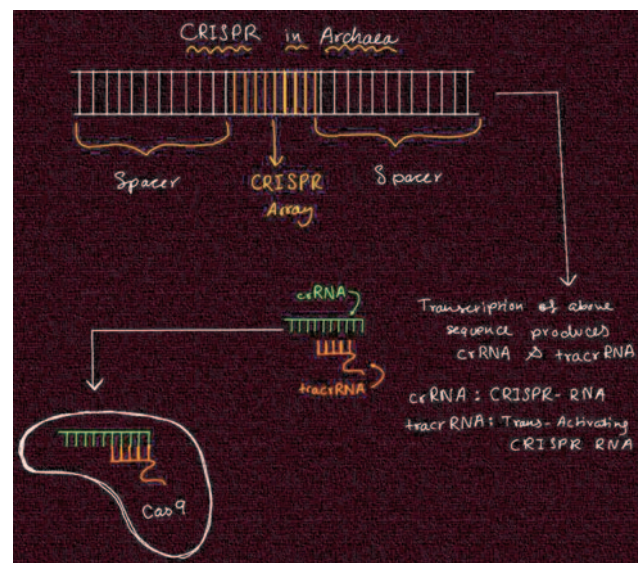 CRISPR in Archaea
Spacer
CRISPR
Array
Spacer
crRNA
tracrRNA
Transcription of above
sequence produces
crRNA & tracrRNA
crRNA : CRISPR-RNA
tracrRNA : Trans-Activating
CRISPR RNA
Cas9